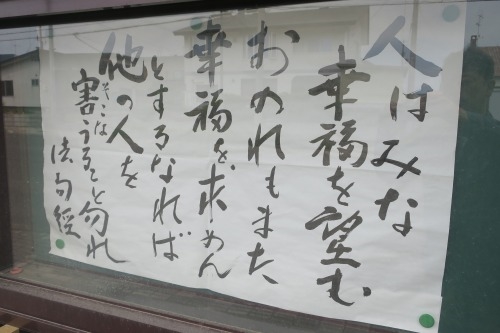 人はみな
幸福を望む
おのれもまた
幸福を求めん
とするなれば
他の人を
そこな
割うること勿れ
法句経